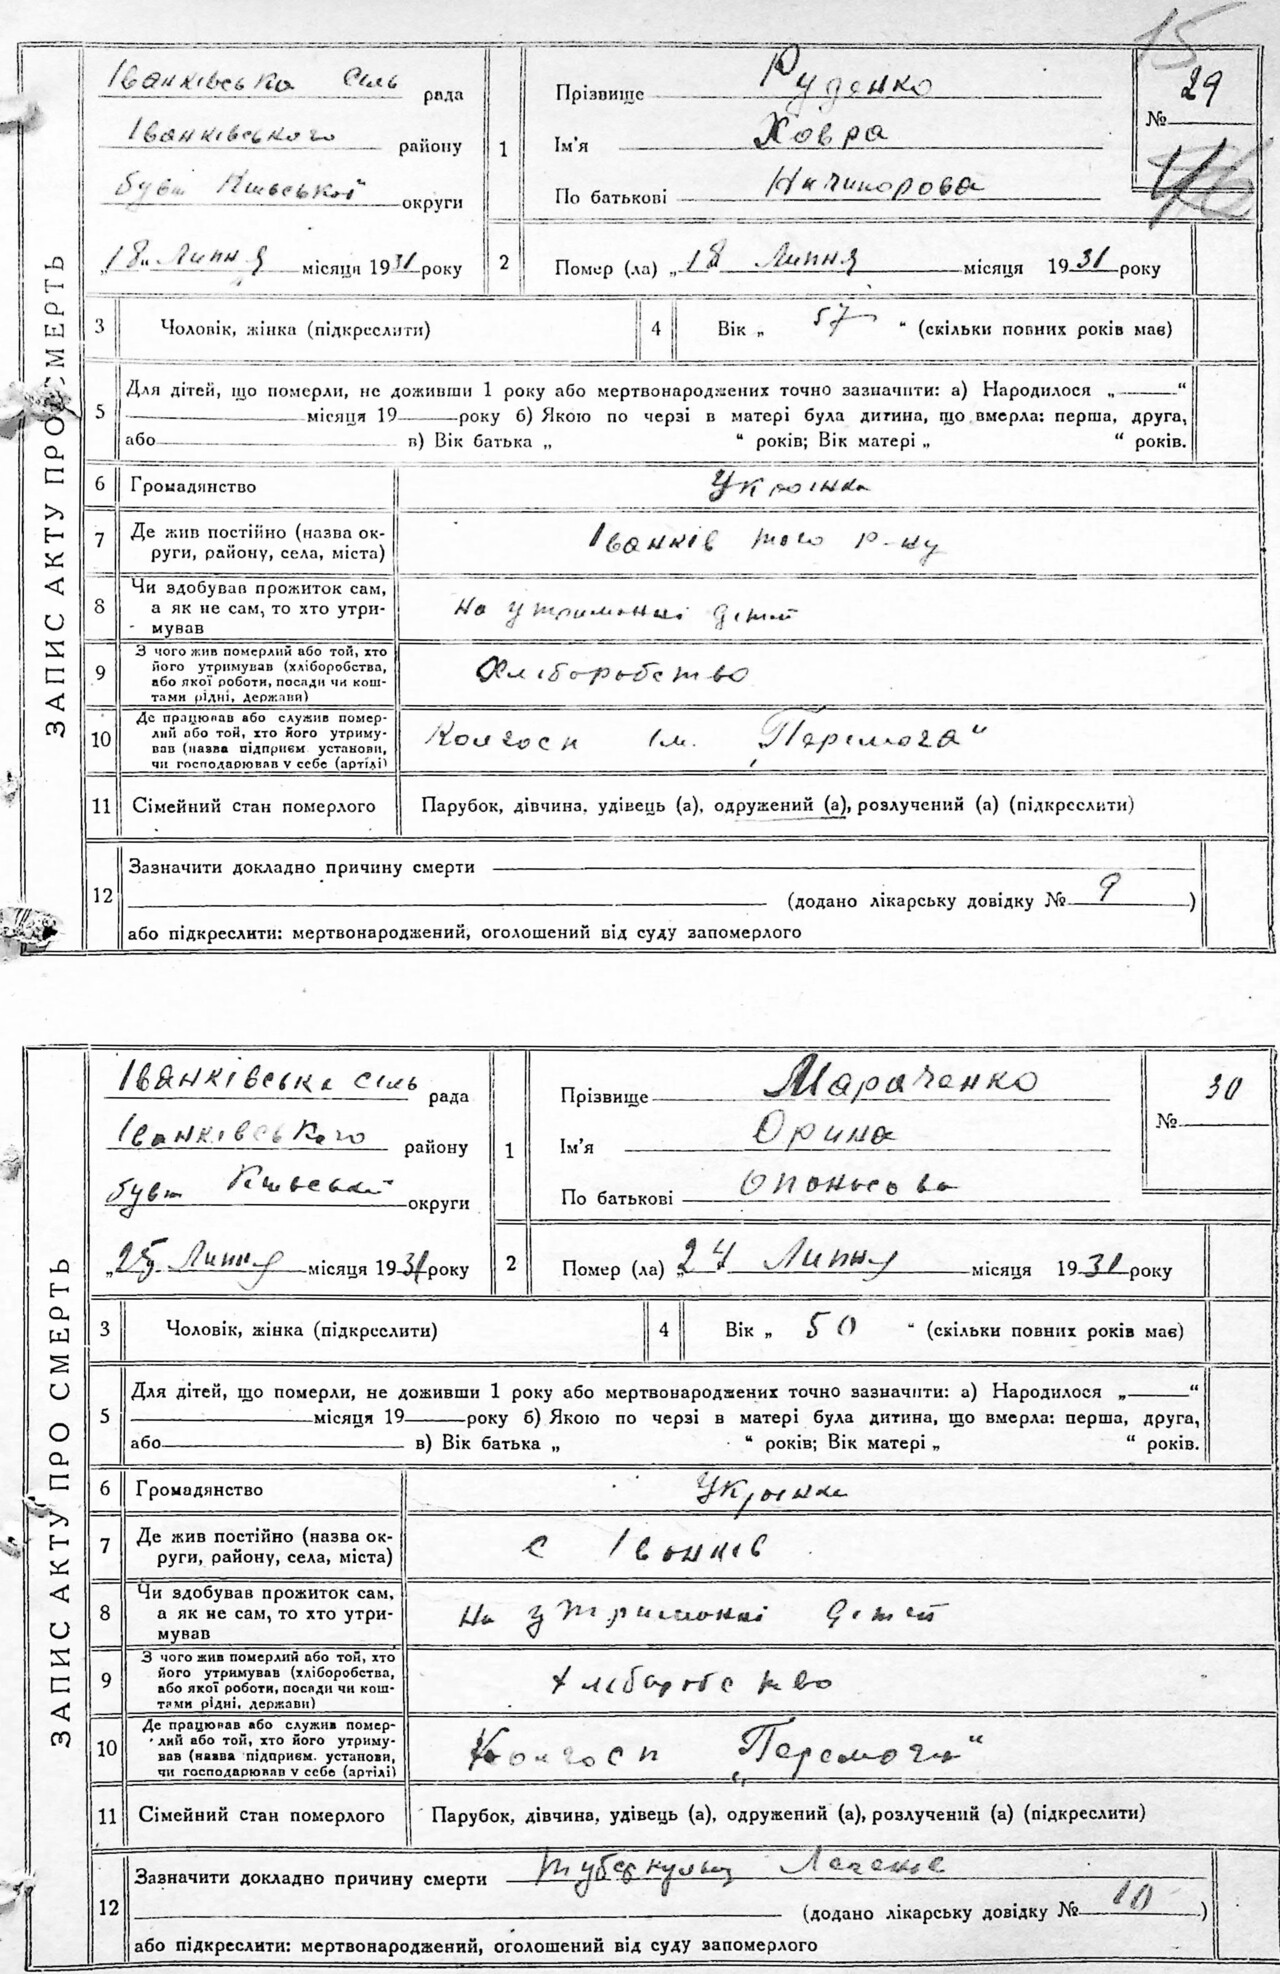 15
ЗАПИС АКТУ ПРО СМЕРТЬ
Іванківська сіль рада
Іванківського району
бувш Київської округи
„18“ Липня місяця 1931 року
1
Прізвище Руденко
Ім'я Ховра
По батькові Ничипорова
№ 29
2
Помер (ла) „18 Липня місяця 1931 року
3 Чоловік, жінка (підкреслити)
4 Вік „ 57 “ (скільки повних років має)
5
Для дітей, що померли, не доживши 1 року або мертвонароджених точно зазначити: а) Народилося „ “
місяця 19 року б) Якою по черзі в матері була дитина, що вмерла: перша, друга,
або в) Вік батька „ “ років; Вік матері „ “ років.
6 Громадянство Українка
7 Де жив постійно (назва ок-
руги, району, села, міста) Іванків того р-ну
8 Чи здобував прожиток сам,
а як не сам, то хто утри-
мував на утриманні дітей
9 З чого жив померлий або той, хто
його утримував (хліборобства,
або якої роботи, посади чи кош-
тами рідні, держави) Хліборобство
10 Де працював або служив помер-
лий або той, хто його утриму-
вав (назва підприєм. установи,
чи господарював у себе (артілі) Колгосп ім. „Перемога“
11 Сімейний стан померлого Парубок, дівчина, удівець (а), одружений (а), розлучений (а) (підкреслити)
12
Зазначити докладно причину смерти
(додано лікарську довідку № 9 )
або підкреслити: мертвонароджений, оголошений від суду запомерлого
ЗАПИС АКТУ ПРО СМЕРТЬ
Іванківська сіль рада
Іванківського району
бувш Київської округи
„25 Липня місяця 1931 року
1
Прізвище Мараченко
Ім'я Орина
По батькові Опонасова
№ 30
2
Помер (ла) „24 Липня місяця 1931 року
3 Чоловік, жінка (підкреслити)
4 Вік „ 50 “ (скільки повних років має)
5
Для дітей, що померли, не доживши 1 року або мертвонароджених точно зазначити: а) Народилося „ “
місяця 19 року б) Якою по черзі в матері була дитина, що вмерла: перша, друга,
або в) Вік батька „ “ років; Вік матері „ “ років.
6 Громадянство Українка
7 Де жив постійно (назва ок-
руги, району, села, міста) с Іванків
8 Чи здобував прожиток сам,
а як не сам, то хто утри-
мував на утриманні дітей
9 З чого жив померлий або той, хто
його утримував (хліборобства,
або якої роботи, посади чи кош-
тами рідні, держави) хліборобство
10 Де працював або служив помер-
лий або той, хто його утриму-
вав (назва підприєм. установи,
чи господарював у себе (артілі) Колгосп „Перемога“
11 Сімейний стан померлого Парубок, дівчина, удівець (а), одружений (а), розлучений (а) (підкреслити)
12
Зазначити докладно причину смерти туберкульоз
(додано лікарську довідку № 10 )
або підкреслити: мертвонароджений, оголошений від суду запомерлого